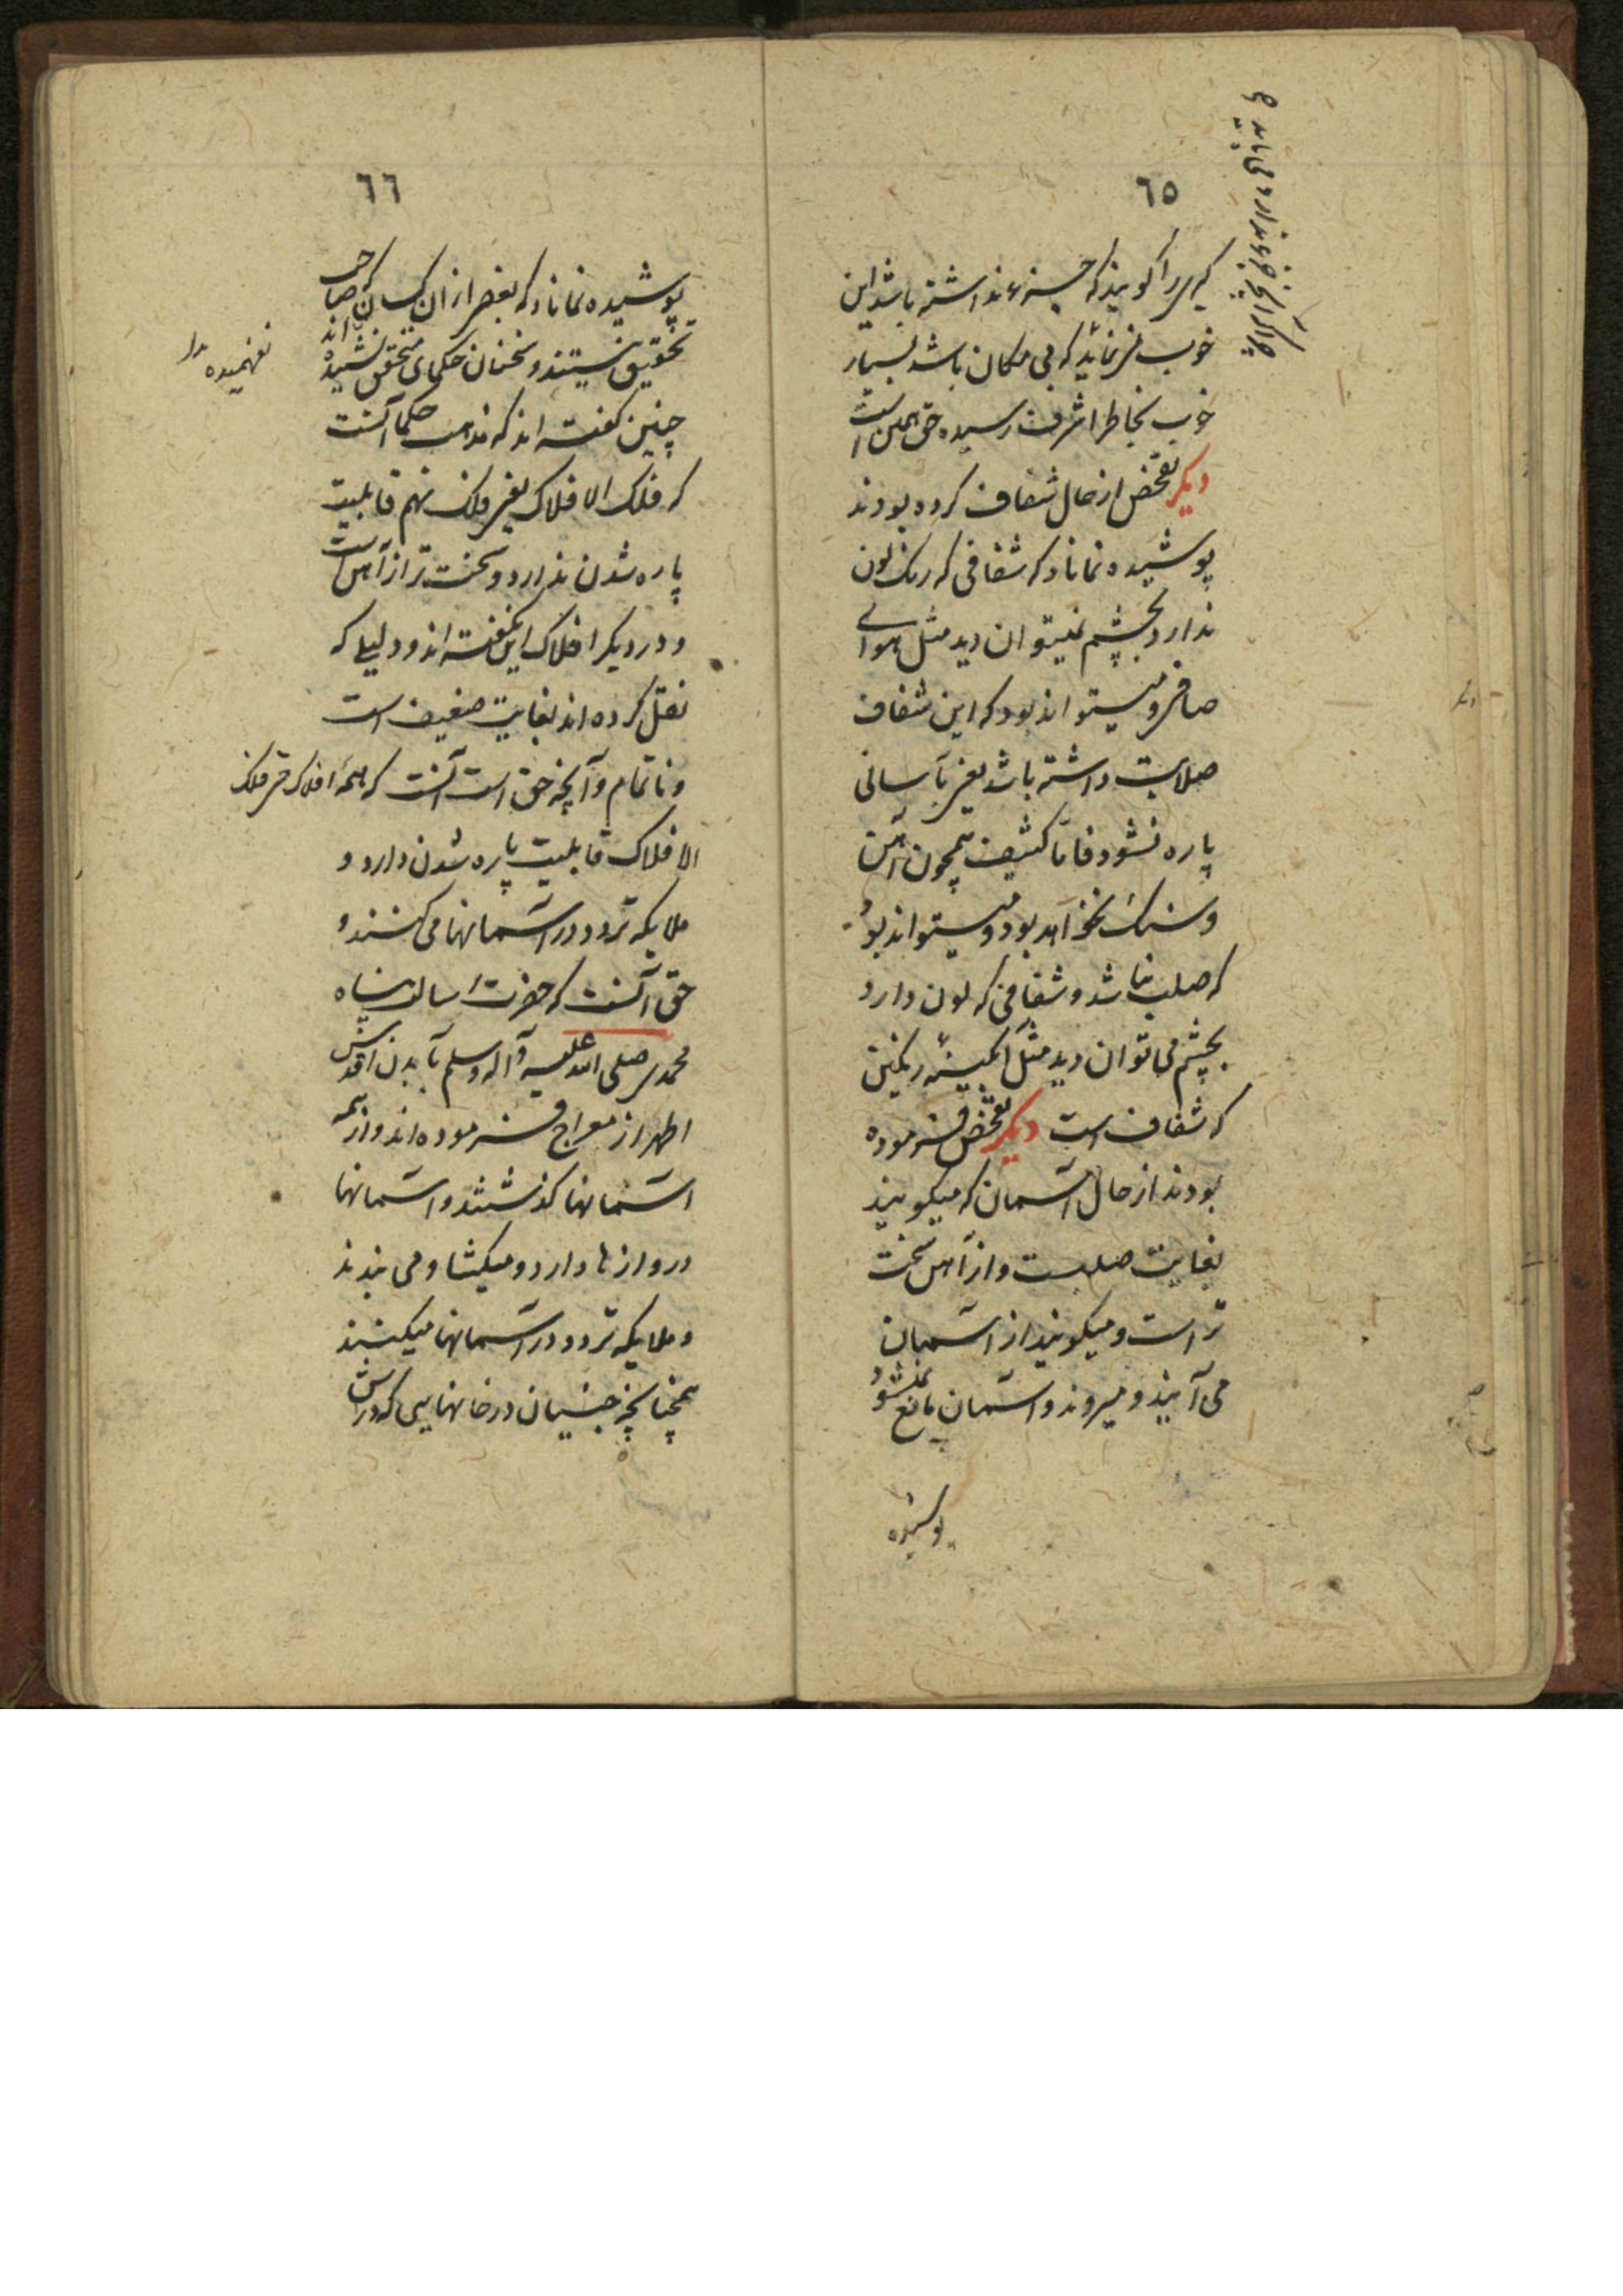 ٦٥
که بی را گویند که حیز نداشته باشد این
خوب می‌نماید که بی مکان باشد بسیار
خوب بخاطر اشرف رسیده حق همین است
دیگر تفحص از حال شفاف کرده بودند
پوشیده نماناد که شفافی که رنگ لون
ندارد بچشم نمیتوان دید مثل هوای
صافی و میتواند بود که این شفاف
صلابت داشته باشد یعنی بآسانی
پاره نشود فاما کثیف همچون آهن
و سنگ نخواهد بود و میتواند بود
که صلب نباشد و شفافی که لون دارد
بچشم می توان دید مثل آبگینه رنگین
که شفاف است دیگر تفحص فرموده
بودند از حال آسمان که میگویند
بغایت صلبست و از آهن سخت
تر است و میگویند از آسمان
می آیند و میروند و آسمان مانع نمیشود
پوشیده
٦٦
پوشیده نماناد که بعضی از ان کسان که صاحب
تحقیق نیستند و سخنان حکمای محقق نشنیده اند
نفهمیده
چنین گفته اند که مذهب حکما آنست
که فلک الافلاک یعنی فلک نهم قابلیت
پاره شدن ندارد و سخت تر از آهن است
و در دیگر افلاک این گفته اند و دلیلی که
نقل کرده اند بغایت ضعیف است
و ناتمام و آنچه حق است آنست که همه افلاک حتی فلک
الافلاک قابلیت پاره شدن دارد و
ملایکه تردد در آسمانها می کنند و
حق آنست که حضرت رسالت پناه
محمدی صلی الله علیه و آله و سلم با بدن اقدس
اطهر از معراج فرموده اند و از همه
آسمانها گذشتند و آسمانها
دروازها دارد و میگشا و می بندند
و ملایکه تردد در آسمانها میکنند
همچنانچه جنیان در خانهایی که درش